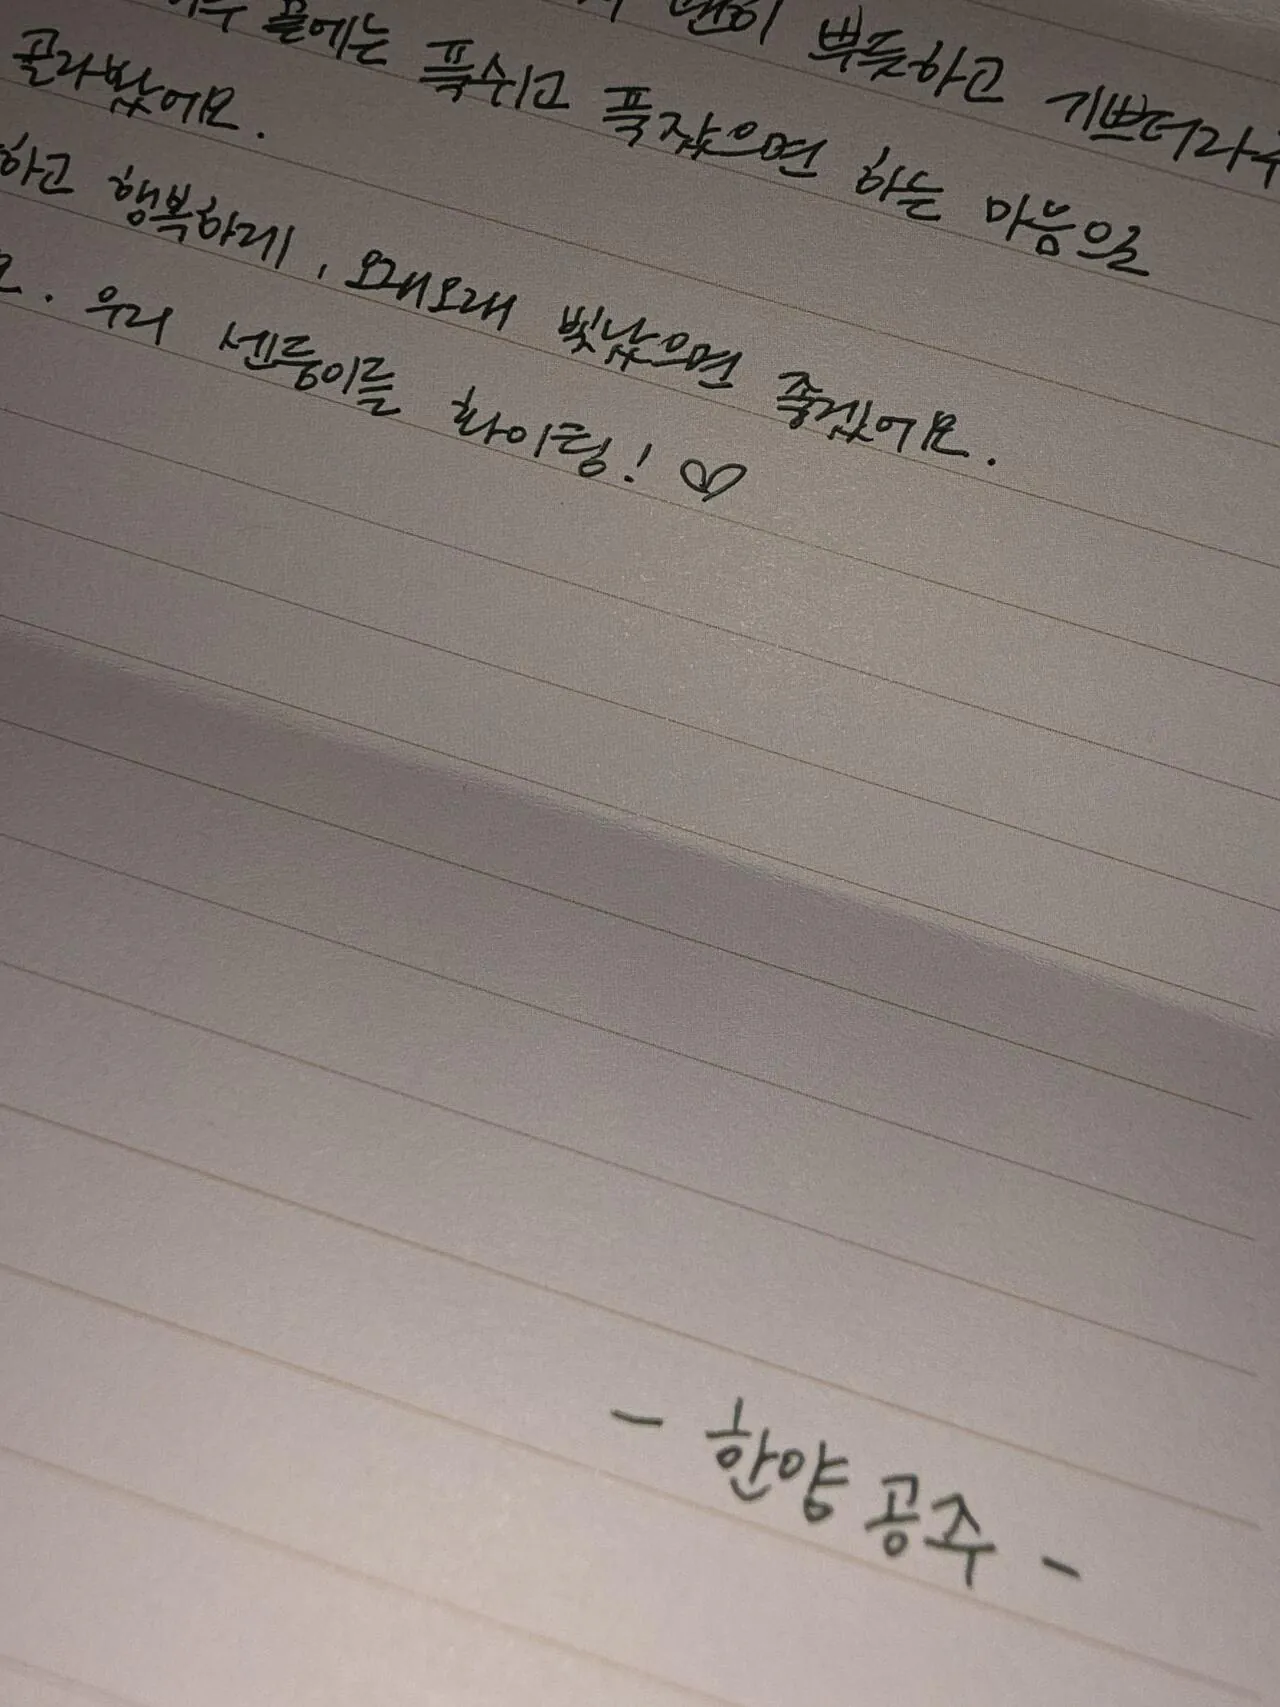 괜히 뿌듯하고 기쁘더라구
하루 끝에는 푹쉬고 푹잤으면 하는 마음으로
골라봤어요.
하고 행복하게, 오래오래 빛났으면 좋겠어요.
요. 우리 센둥이들 화이팅! ♡
- 한양 공주 -